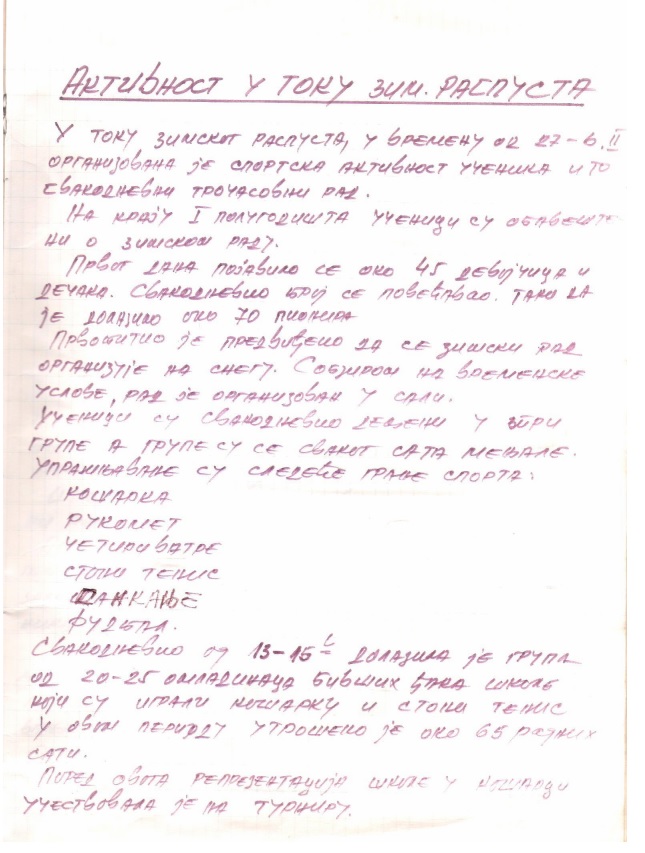 АКТИВНОСТ У ТОКУ ЗИМ. РАСПУСТА
У ТОКУ ЗИМСКОГ РАСПУСТА, У ВРЕМЕНУ ОД 27-6. II
ОРГАНИЗОВАНА ЈЕ СПОРТСКА АКТИВНОСТ УЧЕНИКА И ТО
СВАКОДНЕВНИ ТРОЧАСОВНИ РАД.
НА КРАЈУ I ПОЛУГОДИШТА УЧЕНИЦИ СУ ОБАВЕШТЕ-
НИ О ЗИМСКОМ РАДУ.
ПРВОГ ДАНА ПОЈАВИЛО СЕ ОКО 45 ДЕВОЈЧИЦА И
ДЕЧАКА. СВАКОДНЕВНО БРОЈ СЕ ПОВЕЋАВАО. ТАКО ДА
ЈЕ ДОЛАЗИЛО ОКО 70 ПИОНИРА
ПРВОБИТНО ЈЕ ПРЕДВИЂЕНО ДА СЕ ЗИМСКИ РАД
ОРГАНИЗУЈЕ НА СНЕГУ. С ОБЗИРОМ НА ВРЕМЕНСКЕ
УСЛОВЕ, РАД ЈЕ ОРГАНИЗОВАН У САЛИ.
УЧЕНИЦИ СУ СВАКОДНЕВНО ДЕЉЕНИ У ТРИ
ГРУПЕ А ГРУПЕ СУ СЕ СВАКОГ САТА МЕЊАЛЕ.
УПРАЖЊАВАНЕ СУ СЛЕДЕЋЕ ГРАНЕ СПОРТА:
КОШАРКА
РУКОМЕТ
ЧЕТИРИ ВАТРЕ
СТОНИ ТЕНИС
САНКАЊЕ
ФУДБАЛ.
СВАКОДНЕВНО ОД 13-15 ДОЛАЗИЛА ЈЕ ГРУПА
ОД 20-25 ОМЛАДИНАЦА БИВШИХ ЂАКА ШКОЛЕ
КОЈИ СУ ИГРАЛИ КОШАРКУ И СТОНИ ТЕНИС
У ОВОМ ПЕРИОДУ УТРОШЕНО ЈЕ ОКО 65 РАДНИХ
САТИ.
ПОРЕД ОВОГА РЕПРЕЗЕНТАЦИЈА ШКОЛЕ У КОШАРЦИ
УЧЕСТВОВАЛА ЈЕ НА ТУРНИРУ.